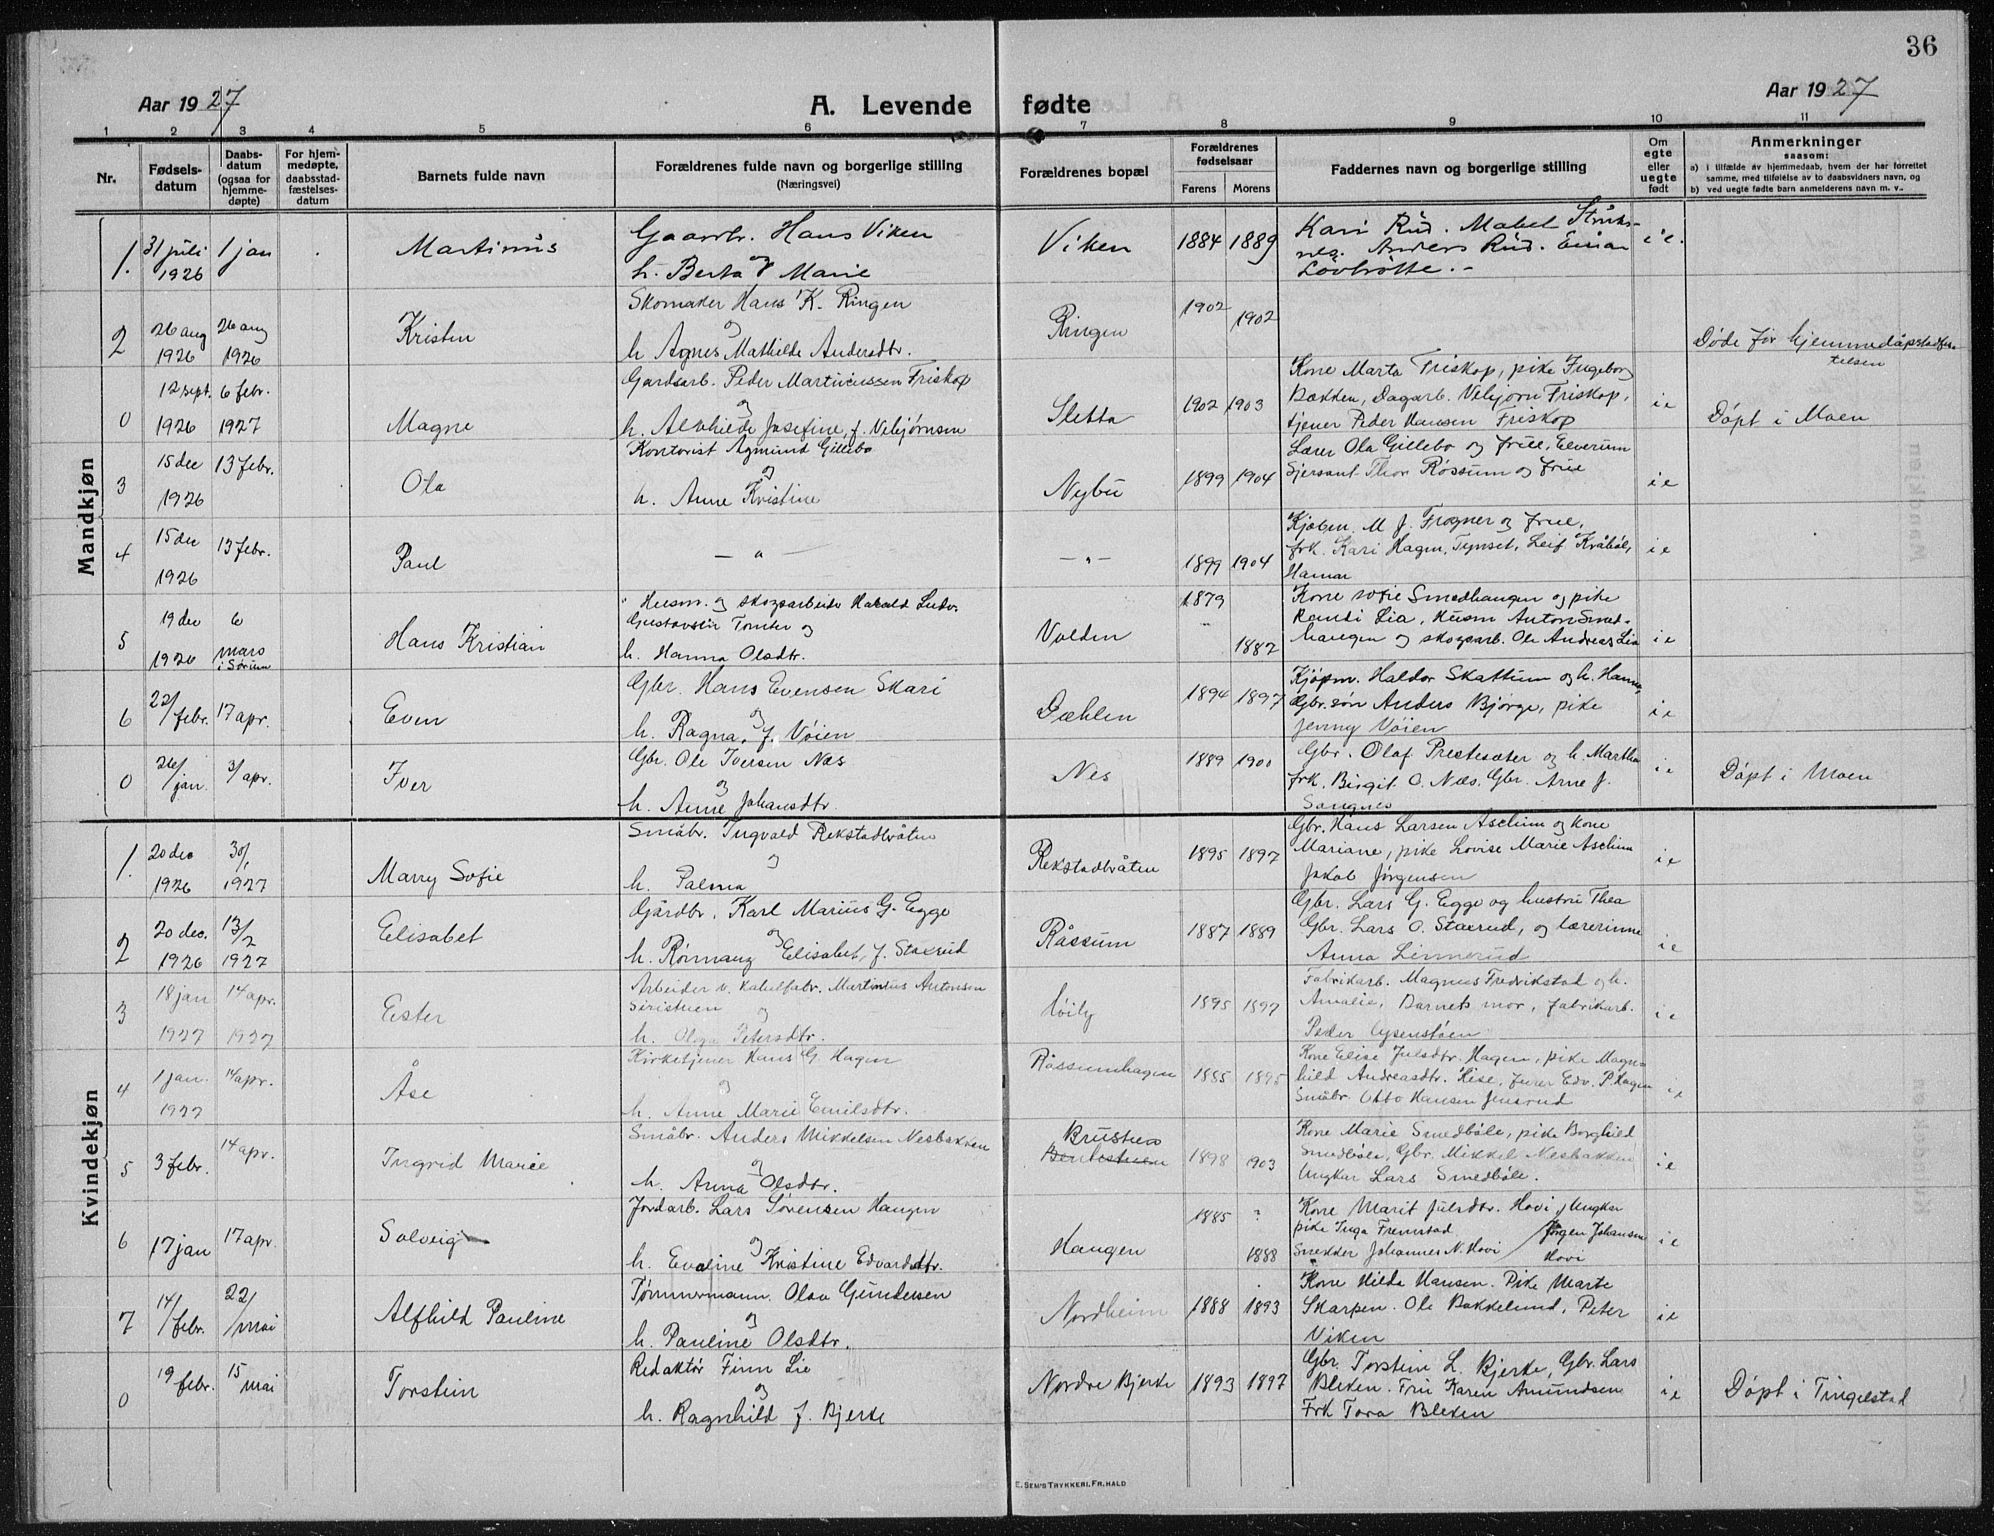 36
Aar 1927 A. Levende fødte Aar 1927
1 2 3 4 5 6 7 8 9 10 11
Nr. Fødsels-datum Daabs-datum (ogsaa for hjemme-døpte) For hjem-medøpte, daabsstad-fæstelses-datum Barnets fulde navn Forældrenes fulde navn og borgerlige stilling (Næringsvei) Forældrenes bopæl Forældrenes fødselsaar Farens Morens Faddernes navn og borgerlige stilling Om egte eller uegte født Anmerkninger saasom: a) i tilfælde av hjemmedaab, hvem der har forrettet samme, med tilføielse av to daabsvidners navn, og b) ved uegte fødte barn anmelderens navn m. v.
Mandkjøn
1. 31 juli 1926 1 jan Martinus Gaardbr. Hans Viken og h. Berta Marie Viken 1884 1889 Kari Rud. Mabel Anders Rud. Einar i e.
2 26 aug 1926 26 aug 1926 Kristen Skomaker Hans K. Ringen og h. Agnes Mathilde Andersdtr. Ringen 1902 1902 Døde før hjemmedåpstadfæstelsen
0 12 sept. 1926 6 febr. 1927 Magne Gardsarb. Peder Martinussen Friskop og h. Alvhilde Josefine, f. Vebjørnsen Sletta 1902 1903 Kone Marta Friskop, pike Ingeborg Bakken, Dagarb. Vebjørn Friskop, tjener Peder Hansen Friskop i e Døpt i Moen
3 15 dec 1926 13 febr. Ola Kontorist Agmund Gillebo og h. Anne Kristine Nybu 1899 1904 Lærer Ola Gillebo og frue, Elverum Sjersant Thor Røssum og frue i e
4 15 dec 1926 13 febr. Paul — " — — " — 1899 1904 Kjøbm. M J. Frogner og frue, frk. Kari Hagen, Tynset, Leif Kråbøl, Hamar i e
5 19 dec 1926 6 mars i Sørum Hans Kristian Husm. og skogsarbeider Harald Ludv. Gustavsen Tomter og h. Hanna Olsdtr. Volden 1879 1882 Kone Sofie Smedhaugen og pike Randi Lia, Husm Anton Smedhaugen og skogsarb. Ole Andreas Lia i e
6 22/febr. 17 apr. Even Gbr. Hans Evensen Skari og h. Ragna, f. Vøien Dæhlen 1894 1897 Kjøpm. Haldor Skattum og h. Hanna, Gbr.søn Anders Bjørge, pike Jenny Vøien i e
0 26/jan. 3/apr. Iver Gbr. Ole Iversen Næs og h. Anne Johansdtr. Nes 1889 1900 Gbr. Olaf Prestesæter og h. Martha frk. Birgit O. Næs. Gbr. Arne J. Sangnes i e Døpt i Moen
Kvindekjøn
1. 20 dec 1926 30/1 1927 Marry Sofie Småbr. Ingvald Rekstadbråten og h. Palma Rekstadbråten 1895 1897 Gbr. Hans Larsen Aschim og kone Mariane, pike Lovise Marie Aschim Jakob Jørgensen i e
2 20 dec. 1926 13/2 1927 Elisabet Gårdbr. Karl Marius G. Egge og h. Rønnaug Elisabet, f. Staxrud Råssum 1887 1889 Gbr. Lars G. Egge og hustru Thea Gbr. Lars O. Staxrud, og lærerinne Anna Linnerud i e
3 18 jan 1927 14 apr. 1927 Ester Arbeider v. kabelfabr. Martinius Antonsen Seristuen og h. Olga Petersdtr. Høily 1895 1897 Fabrikarb. Magnus Fredrikstad og h. Amalie, Barnets mor, fabrikarb. Peder Lysenstøen i e
4 1 jan. 1927 14 apr. Åse Kirketjener Hans G. Hagen og h. Anne Marie Emilsdtr. Råssumhagen 1885 1895 Kone Elise Julsdtr. Hagen, pike Magnhild Andreasdtr. Hise, furer Edv. P. Hagen Småbr. Otto Hansen Jensrud i e
5 3 febr. 14 apr. Ingrid Marie Småbr. Anders Mikkelsen Nesbakken og h. Anna Olsdtr. Brustuen 1898 1903 Kone Marie Smedbøle, pike Borghild Smedbøle, Gbr. Mikkel Nesbakken Ungkar Lars Smedbøle. i e
6 17 jan 17 apr. Solveig Jordarb. Lars Sørensen Haugen og h. Evaline Kristine Edvardsdtr. Haugen 1885 ? 1888 Kone Marit Julsdtr. Hovi, pike Inga Fremstad Smedder Johannes N. Hovi / Ungkar Jørgen Johansen Hovi i e
7 14/febr. 22/mai Alfhild Pauline Tømmermann. Olav Gundersen og h. Pauline Olsdtr. Nordheim 1888 1893 Kone Hilda Hansen. Pike Marte Skarpen. Ole Bakkelund, Peter Viken i e
0 19 febr. 15 mai Torstein Redaktør Finn Lie og h. Ragnhild f. Bjerke Nordre Bjerke 1893 1897 Gbr. Torstein L. Bjerke, Gbr. Lars Bleken. Fru Karen Amundsen Frk Tora Bleken i e Døpt i Tingelstad
E. SEM'S TRYKKERI, FR.HALD